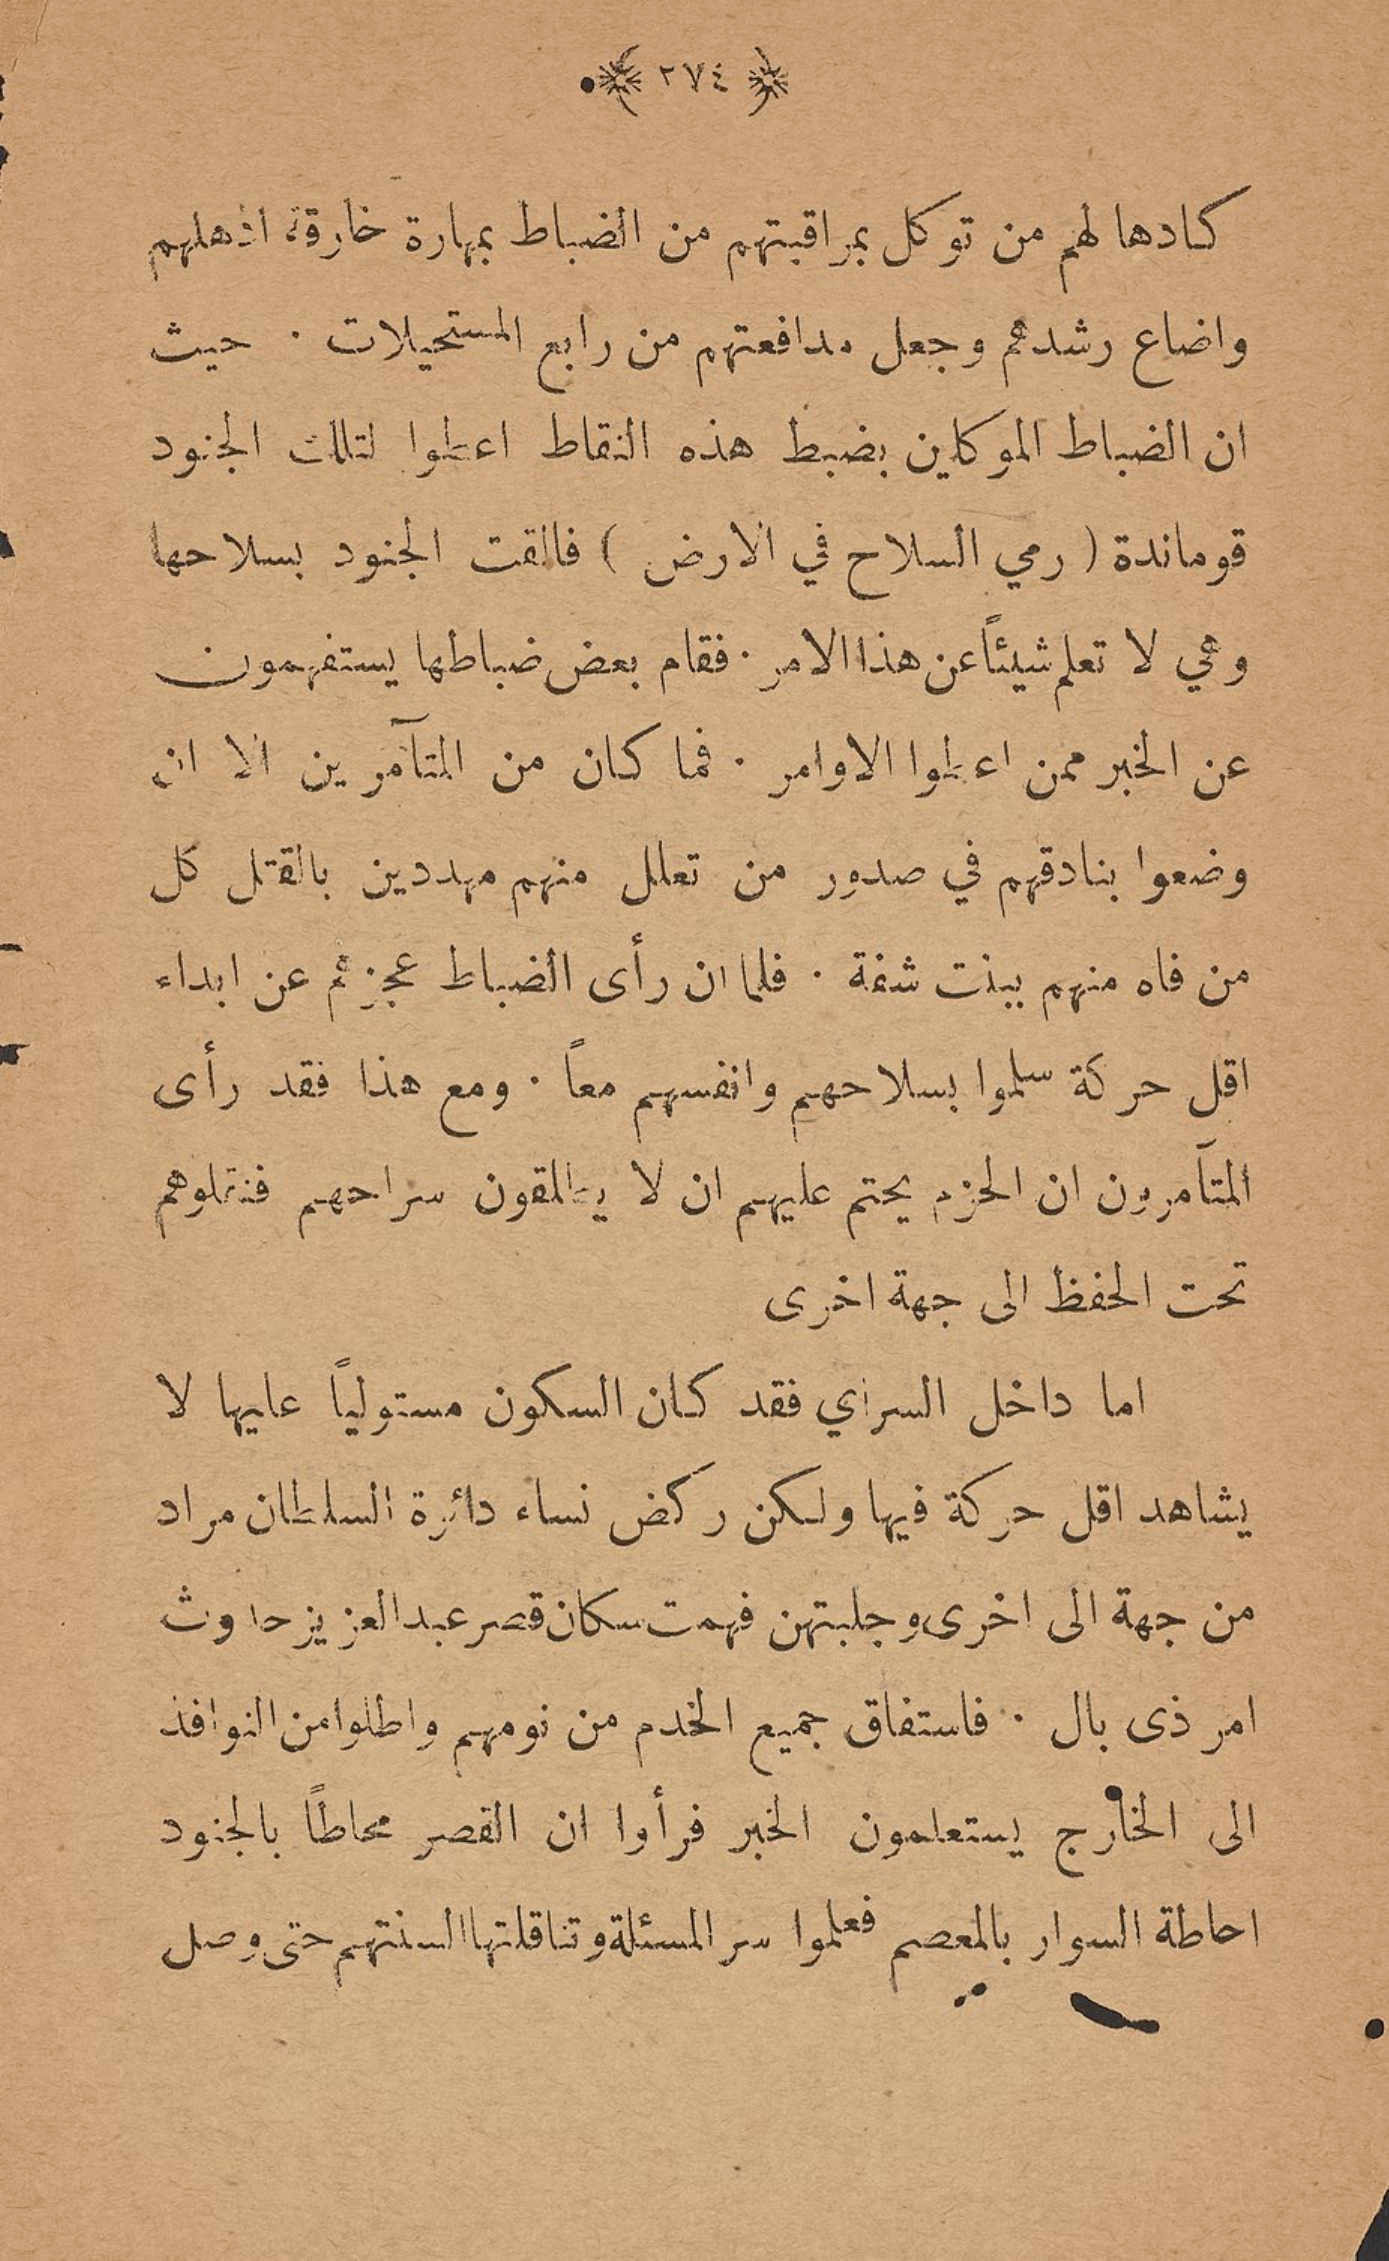 ٢٧٤
كادها لهم من توكل بمراقبتهم من الضباط بمهارة خارقة اذهلهم
واضاع رشدهم وجعل مدافعتهم من رابع المستحيلات . حيث
ان الضباط الموكلين بضبط هذه النقاط اعطوا لتلك الجنود
قوماندة ( رمي السلاح في الارض ) فالقت الجنود بسلاحها
وهي لا تعلم شيئاً عن هذا الامر . فقام بعض ضباطها يستفهمون
عن الخبر ممن اعطوا الاوامر . فما كان من المتآمرين الا ان
وضعوا بنادقهم في صدور من تعلل منهم مهددين بالقتل كل
من فاه منهم ببنت شفة . فلما ان رأى الضباط عجزهم عن ابداء
اقل حركة سلموا بسلاحهم وانفسهم معاً . ومع هذا فقد رأى
المتآمرون ان الحزم يحتم عليهم ان لا يطلقون سراحهم فنقلوهم
تحت الحفظ الى جهة اخرى
اما داخل السراي فقد كان السكون مستولياً عليها لا
يشاهد اقل حركة فيها ولكن ركض نساء دائرة السلطان مراد
من جهة الى اخرى وجلبتهن فهمت سكان قصر عبد العزيز حدوث
امر ذى بال . فاستفاق جميع الخدم من نومهم واطلوا من النوافذ
الى الخارج يستعلمون الخبر فرأوا ان القصر محاطاً بالجنود
احاطة السوار بالمعصم فعلموا سر المسئلة وتناقلتها السنتهم حتى وصل